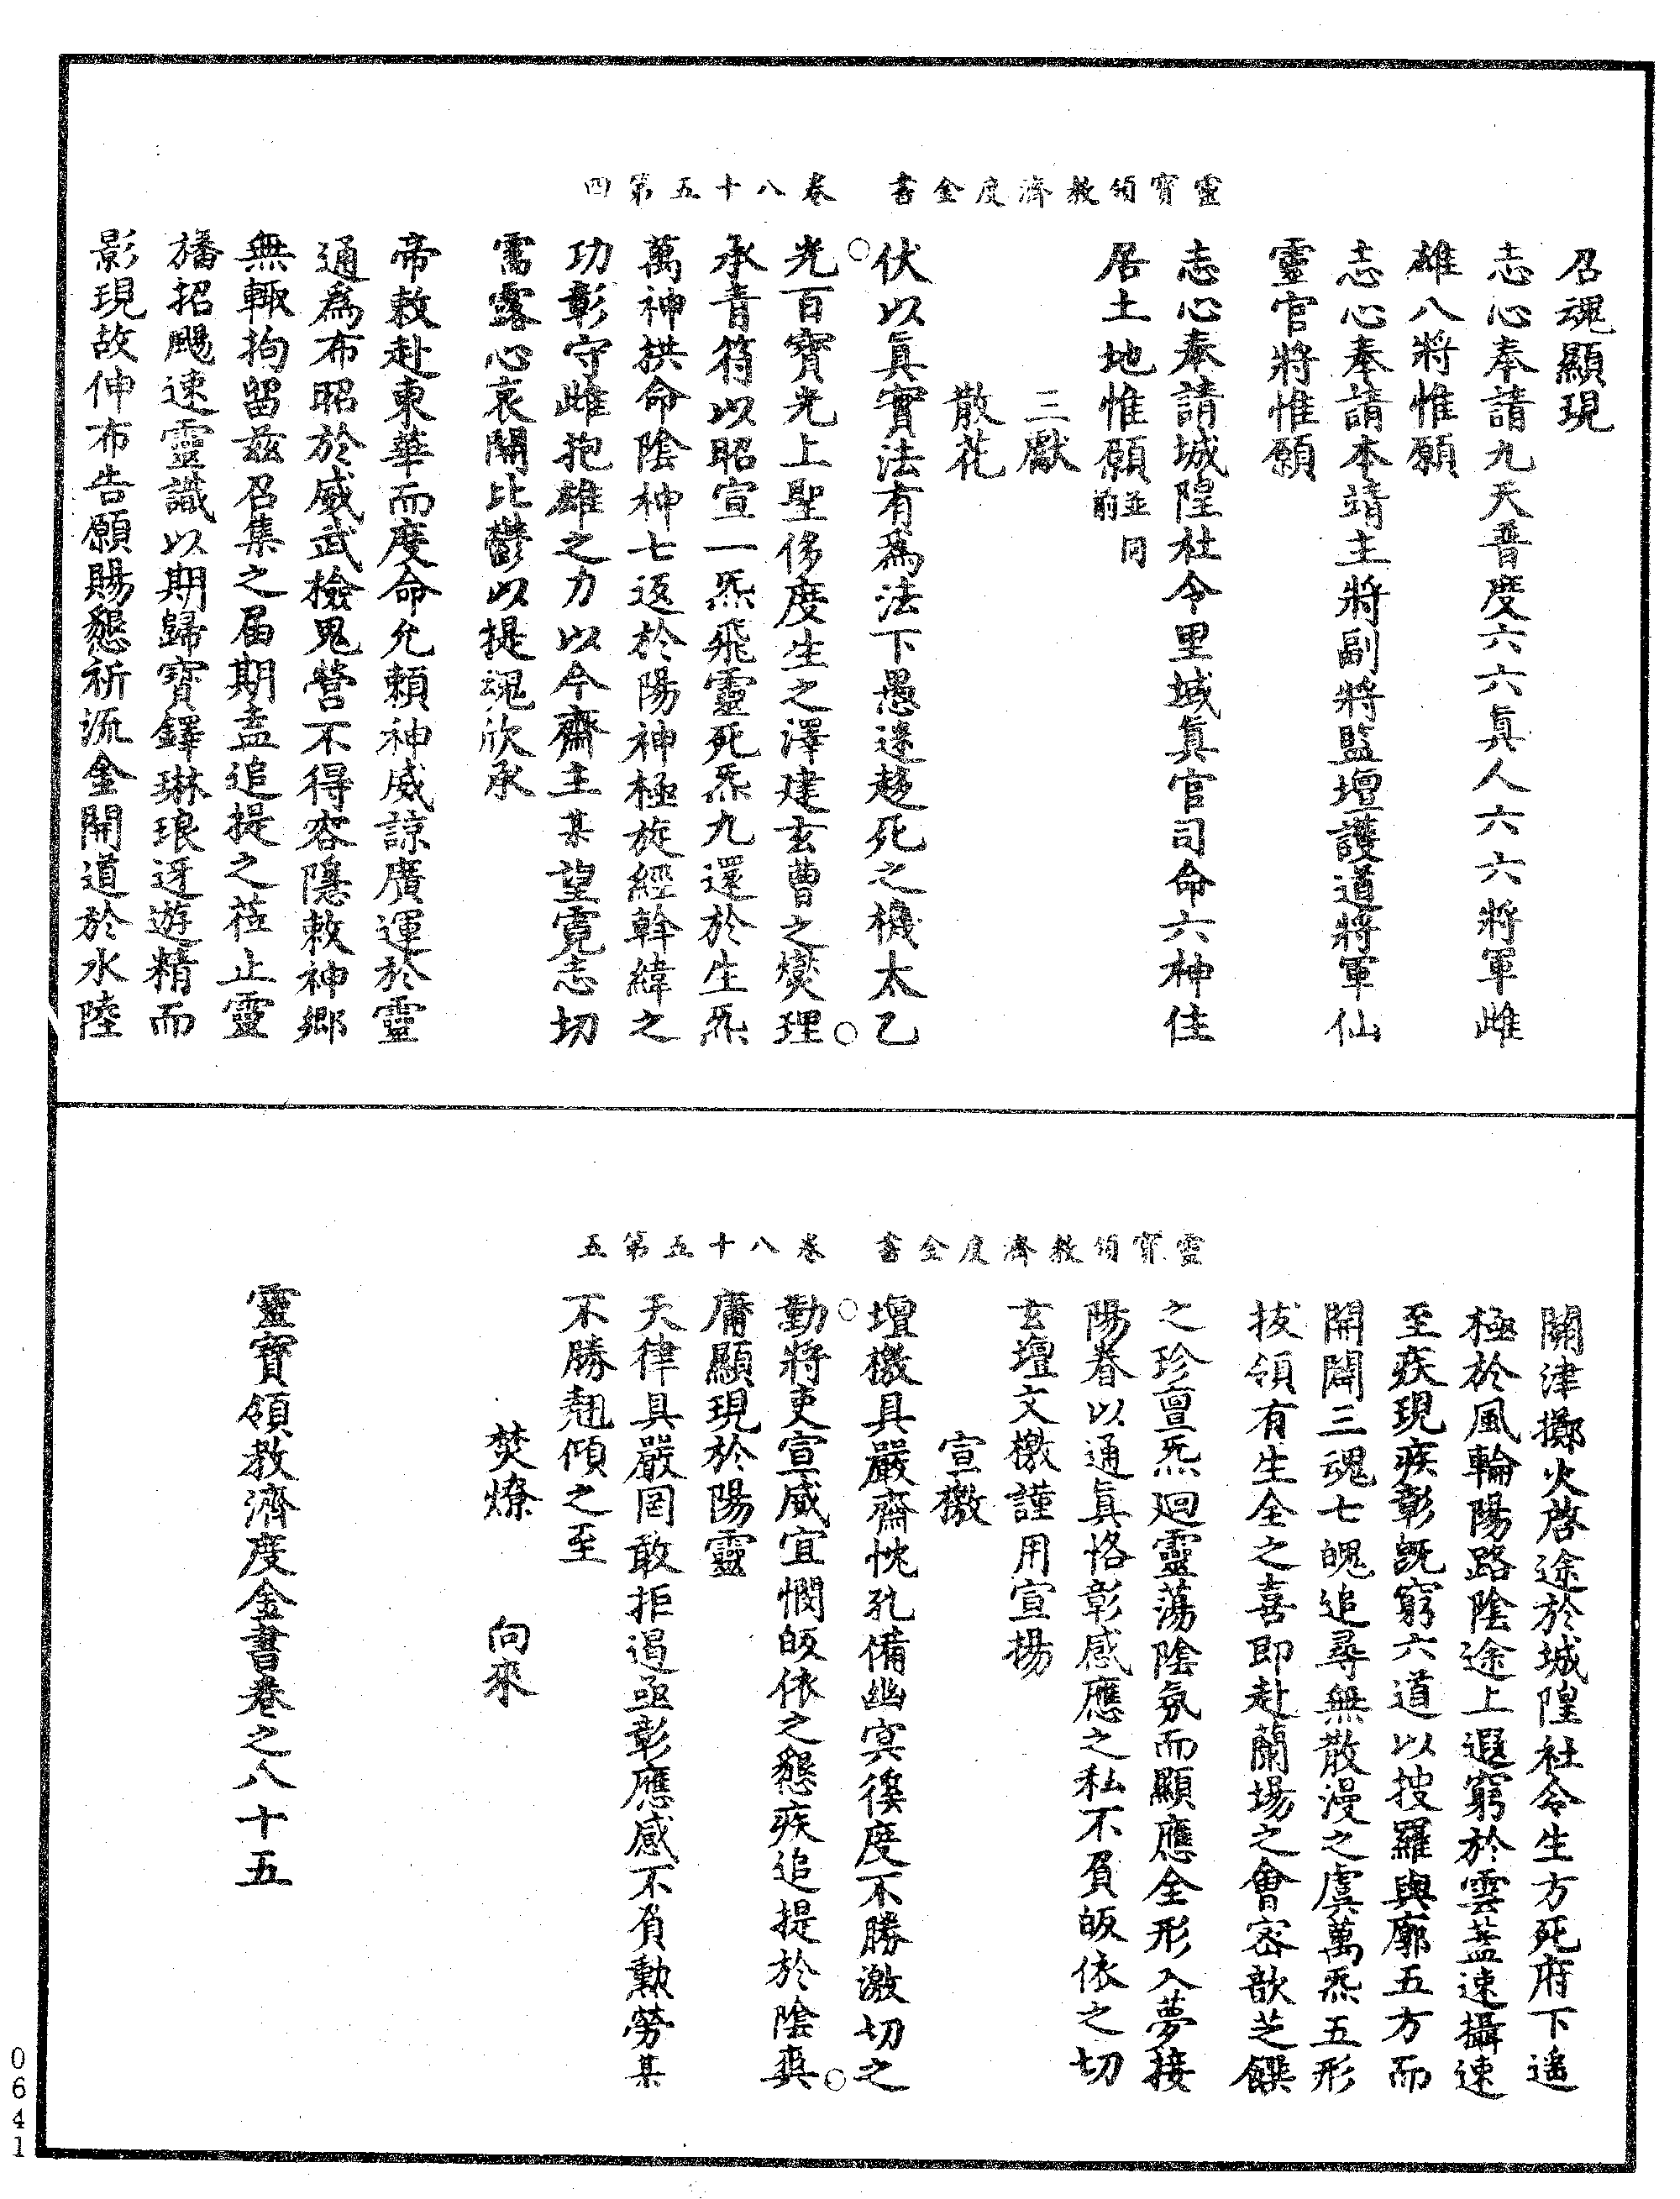 靈寶領教濟度金書　卷八十五第四
召魂顯現
志心奉請九天普度六六真人六六將軍雌
雄八將惟願
志心奉請本靖主將副將監壇護道將軍仙
靈官將惟願
志心奉請城隍社令里域真官司命六神住
居土地惟願並同前
三獻
散花
伏以真實法有為法下愚迷趍死之機太乙
光百寶光上聖侈度生之澤建玄曹之爕理
承青符以昭宣一炁飛靈死炁九還於生炁
萬神拱命陰神七返於陽神極旋經斡緯之
功彰守雌抱雄之力以今齋主某望霓志切
霑露心哀闢比鬱以提魂欣承
帝敕赴東華而度命允賴神威諒廣運於靈
通為布昭於威武檢鬼營不得容隱敕神鄉
無輙拘留兹召集之届期盍追提之蒞止靈
旛招颺速靈識以期歸寶鐸琳琅迓遊精而
影現故伸布告願賜懇祈流金開道於水陸
靈寶領教濟度金書　卷八十五第五
關津擲火啓途於城隍社令生方死府下遙
極於風輪陽路陰途上遐窮於雲蓋速攝速
至疾現疾彰既窮六道以搜羅與廓五方而
開闢三魂七魄追尋無散漫之虞萬炁五形
拔領有生全之喜即赴蘭場之會密歆芝饌
之珍亶炁迴靈蕩陰氛而顯應全形入夢接
陽眷以通真恪彰感應之私不負皈依之切
玄壇文檄謹用宣揚
宣檄
壇檄具嚴齋忱孔備幽㝠徯度不勝激切之
勤將吏宣威宜憫皈依之懇疾追提於陰爽
庸顯現於陽靈
天律具嚴罔敢拒遏亟彰應感不負勳勞某
不勝翹傾之至
焚燎　向來
靈寶領教濟度金書卷之八十五
0641